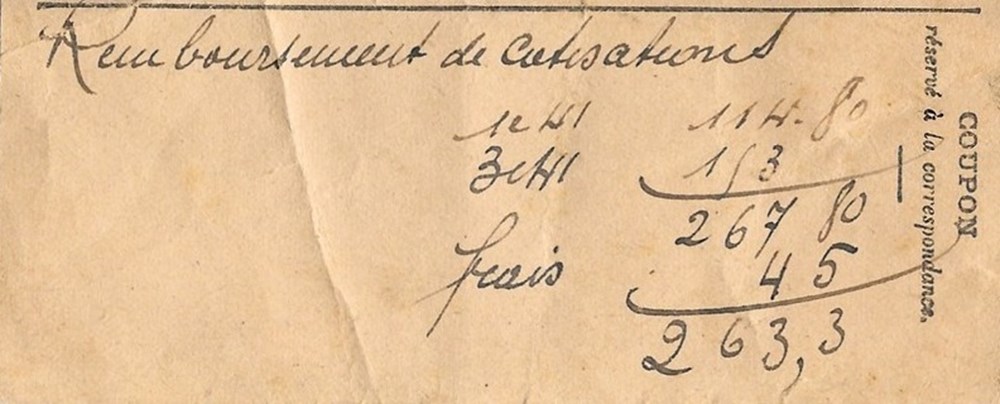 Remboursement de cotisations
1e 41 114.80
3e 41 153
267 80
frais 4 5
263,3
COUPON
réservé à la correspondance.